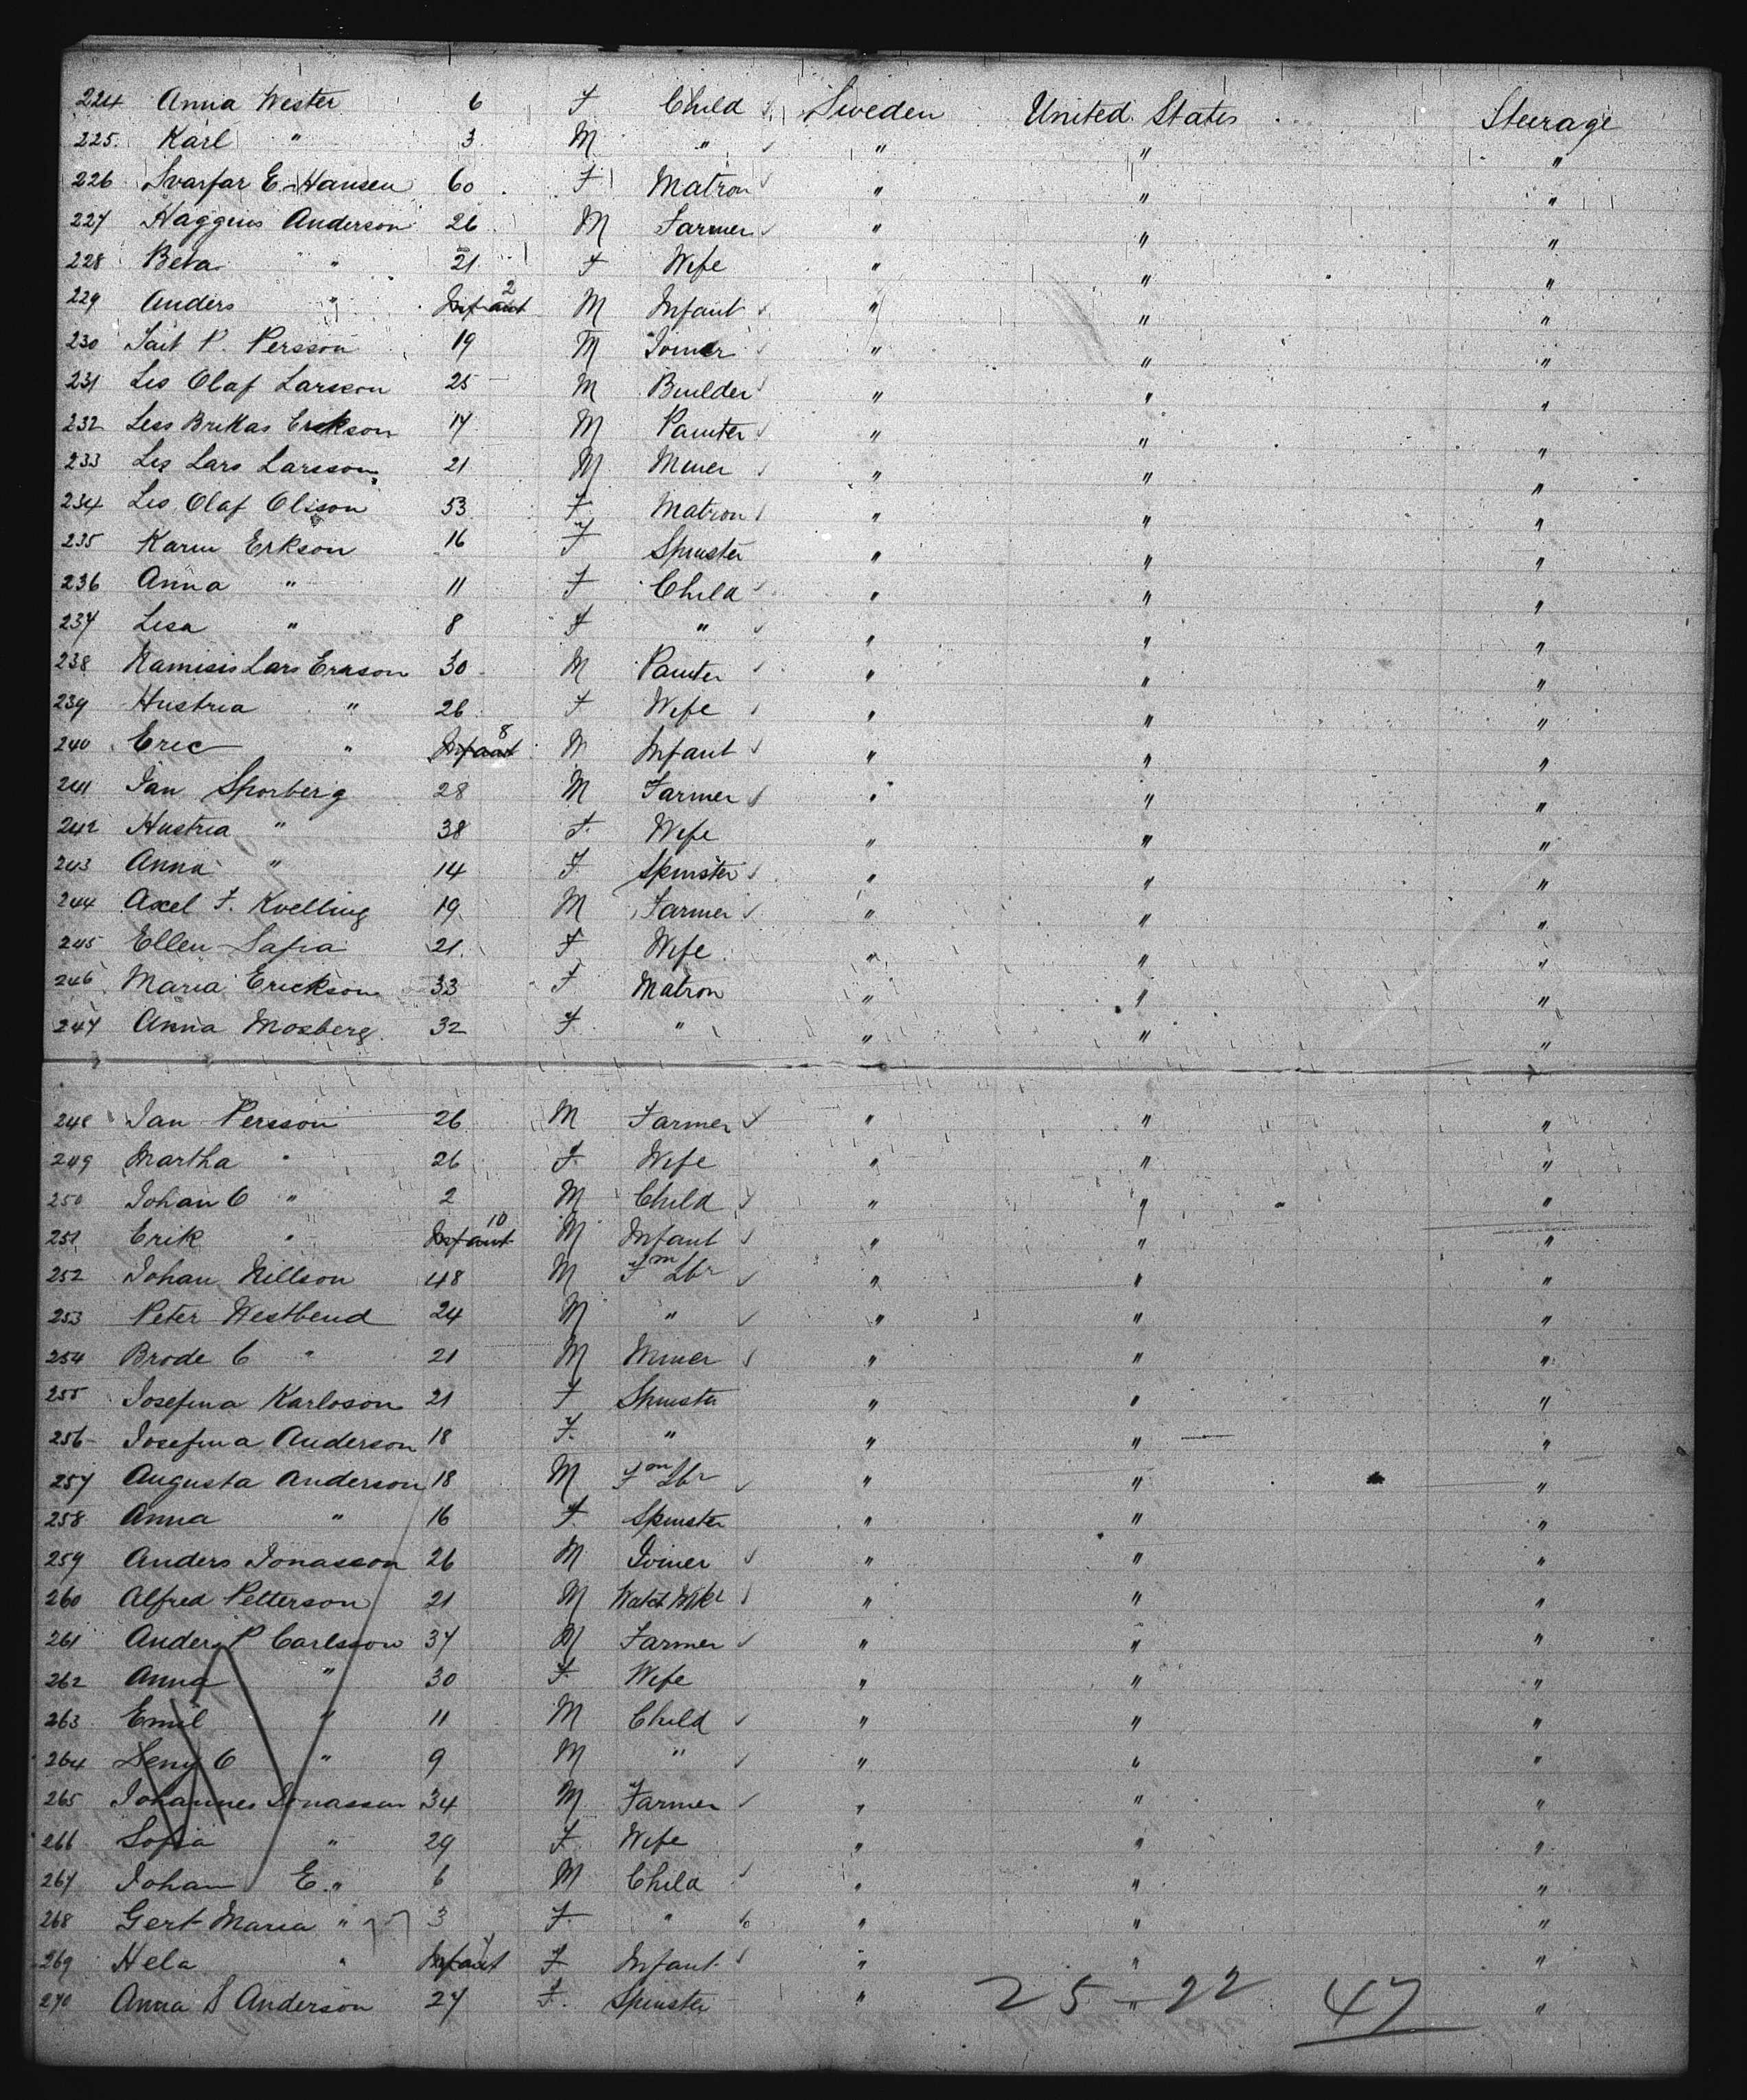 224 Anna Wester 6 F Child Sweden United States Steerage
225 Karl " 3 M " " " "
226 Svarfar E Hansen 60 F Matron " " "
227 Haggus Anderson 26 M Farmer " " "
228 Beta " 21 F Wife " " "
229 Anders " Infant 2 M Infant " " "
230 P. Persson 19 M Joiner " " "
231 Les Olaf Larsson 25 M Builder " " "
232 Less Brikas Erikson 17 M Painter " " "
233 Les Lars Larsson 21 M Miner " " "
234 Les Olaf Olsson 53 F Matron " " "
235 Karin Erkson 16 F Spinster " " "
236 Anna " 11 F Child " " "
237 Lisa " 8 F " " " "
238 Lars Erkson 30 M Painter " " "
239 Hustria " 26 F Wife " " "
240 Eric " Infant 8 M Infant " " "
241 Jan Sporberg 28 M Farmer " " "
242 Hustria " 38 F. Wife " " "
243 Anna " 14 F. Spinster " " "
244 Axel F. Kvelling 19 M Farmer " " "
245 Ellen Safia 21 F Wife " " "
246 Maria Erickson 33 F Matron " " "
247 Anna Mosberg 32 F. " " " "
248 Jan Persson 26 M Farmer " " "
249 Martha " 26 F. Wife " " "
250 Johan C " 2 M Child " " "
251 Erik " Infant 10 M Infant " " "
252 Johan Nillson 48 M Fm Lbr " " "
253 Peter Westbend 24 M " " " "
254 Brode C " 21 M Miner " " "
255 Josefina Karlsson 21 F Spinster " " "
256 Josefina Anderson 18 F. " " " "
257 Augusta Anderson 18 M Fm Lbr " " "
258 Anna " 16 F. Spinster " " "
259 Anders Jonasson 26 M Joiner " " "
260 Alfred Petterson 21 M Watch Mkr " " "
261 Anders P Carlsson 37 M Farmer " " "
262 Anna " 30 F. Wife " " "
263 Emil " 11 M Child " " "
264 C " 9 M " " " "
265 Johannes Jonasson 34 M Farmer " " "
266 Sofia " 29 F. Wife " " "
267 Johan E. " 6 M Child " " "
268 Gert Maria " 3 F. " " " "
269 Hela " Infant F Infant " " "
270 Anna S Anderson 27 F. Spinster " " "
25 - 22 47